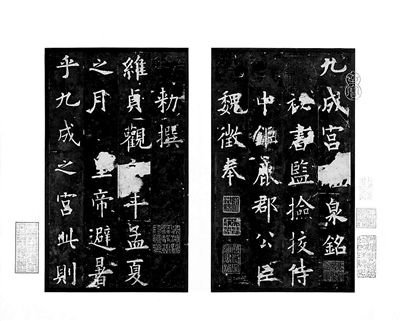 九成宮泉銘
秘書監撿挍侍
中鉅鹿郡公臣
魏徵奉
勑撰
維貞觀六年孟夏
之月 皇帝避暑
乎九成之宮此則